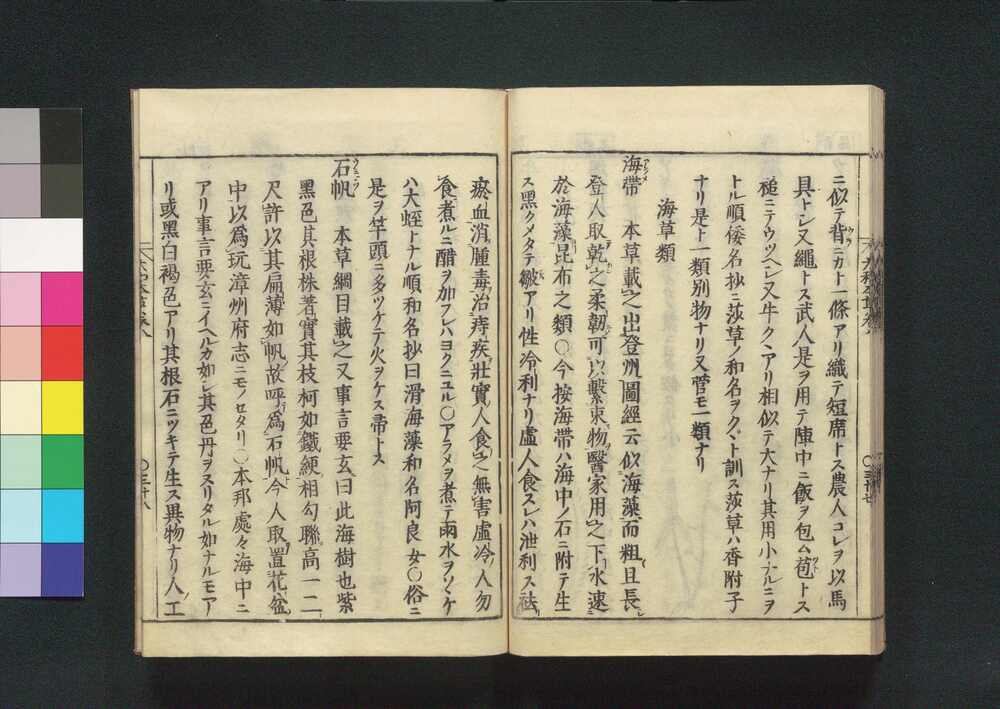 ニ似テ背ニカト一條アリ織テ短席トス農人コレヲ以馬
具トシ又繩トス武人是ヲ用テ陣中ニ飯ヲ包ム苞トス
槌ニテウツヘシ又牛クヽアリ相似テ大ナリ其用小ナルニヲ
トル順倭名抄ニ莎草ノ和名ヲクヽト訓ス莎草ハ香附子
ナリ是ト一類別物ナリ又菅モ一類ナリ
海草類
海帶 本草載之出登州圖經云似海藻而粗且長
登人取乾之柔韌可以繫束物醫家用之下水速
於海藻昆布之類○今按海帶ハ海中ノ石ニ附テ生
ス黑クメタテ皺アリ性冷利ナリ虛人食スレハ泄利ス祛
瘀血消腫毒治痔疾壯實人食之無害虛冷人勿
食煮ルニ醋ヲ加フレハヨクニユル○アラメヲ煮テ雨水ヲソヽケ
ハ大蛭トナル順和名抄曰滑海藻和名阿良女○俗ニ
是ヲ竿頭ニ多ツケテ火ヲケス帚トス
石帆 本草綱目載之又事言要玄曰此海樹也紫
黑色其根株著實其枝柯如鐵綆相勾聯高一二
尺許以其扁薄如帆故呼爲石帆今人取置花盆
中以爲玩漳州府志ニモノセタリ○本邦處々海中ニ
アリ事言要玄ニイヘルカ如シ其色丹ヲスリタル如ナルモア
リ或黑白褐色アリ其根石ニツキテ生ス異物ナリ人工